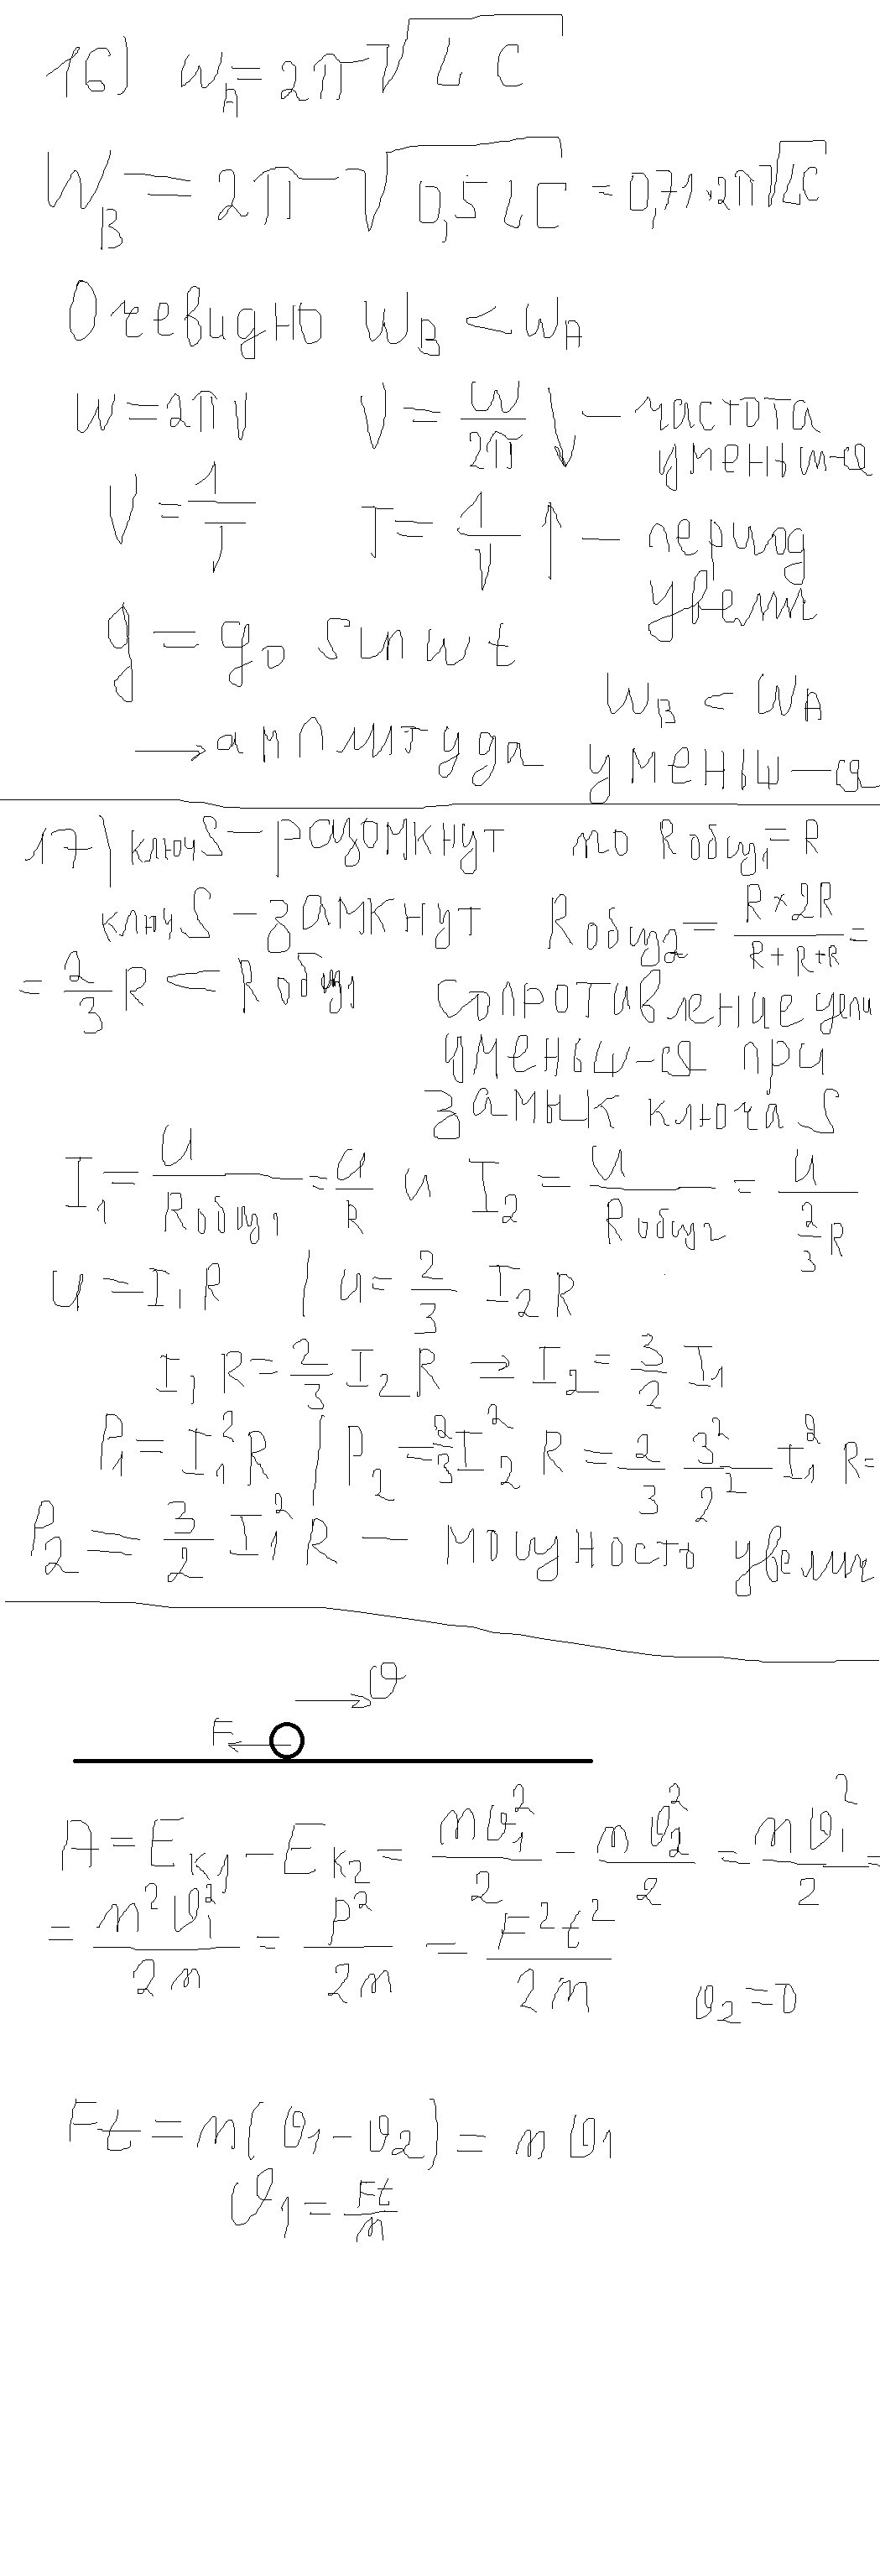 16) W_A = 2π√(LC)
W_B = 2π√(0,5LC) = 0,71·2π√(LC)
Очевидно W_B < W_A
W = 2πν ν = W/2π ↓ — частота уменьш-ся
ν = 1/T T = 1/ν ↑ — период увелич
g = g₀ sin wt
W_B < W_A
→ амплитуда уменьш-ся
17) ключ S — разомкнут то R общ₁ = R
ключ S — замкнут R общ₂ = (R × 2R)/(R + R + R) =
= 2/3 R < R общ₁ сопротивление цепи
уменьш-ся при
замык ключа S
I₁ = U/R общ₁ = U/R и I₂ = U/R общ₂ = U/(2/3 R)
U = I₁R | U = 2/3 I₂R
I₁R = 2/3 I₂R → I₂ = 3/2 I₁
P₁ = I₁²R | P₂ = 2/3 I₂²R = 2/3 3²/2² I₁²R =
P₂ = 3/2 I₁²R — мощность увелич
υ
F
A = E_K1 − E_K2 = mυ₁²/2 − mυ₂²/2 = mυ₁²/2 =
= m²υ₁²/2m = P²/2m = F²t²/2m
υ₂ = 0
Ft = m(υ₁ − υ₂) = mυ₁
υ₁ = Ft/m